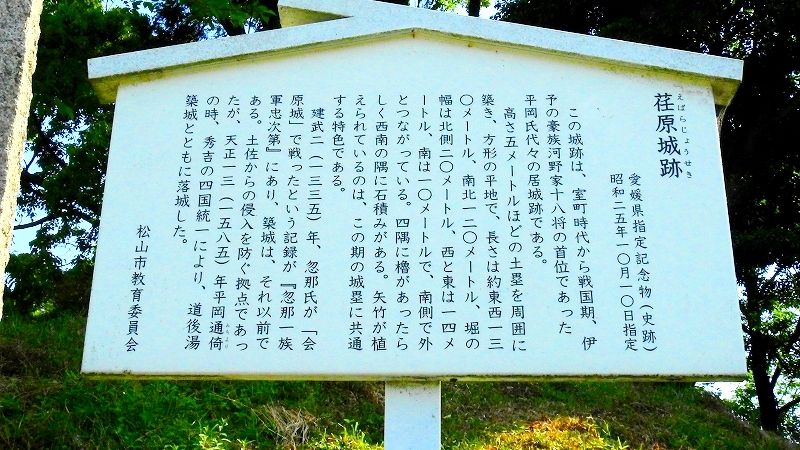 荏原城跡
えばらじょうせき
愛媛県指定記念物(史跡)
昭和二五年一〇月一〇日指定
この城跡は、室町時代から戦国期、伊
予の豪族河野家十八将の首位であった
平岡氏代々の居城跡である。
高さ五メートルほどの土塁を周囲に
築き、方形の平地で、長さは約東西一三
〇メートル、南北一二〇メートル、堀の
幅は北側二〇メートル、西と東は一四メ
ートル、南は一〇メートルで、南側で外
とつながっている。四隅に櫓があったら
しく西南の隅に石積みがある。矢竹が植
えられているのは、この期の城塁に共通
する特色である。
建武二(一三三五)年、忽那氏が「会
原城」で戦ったという記録が『忽那一族
軍忠次第』にあり、築城は、それ以前で
ある。土佐からの侵入を防ぐ拠点であっ
たが、天正一三(一五八五)年平岡通倚
みちより
の時、秀吉の四国統一により、道後湯
築城とともに落城した。
松山市教育委員会